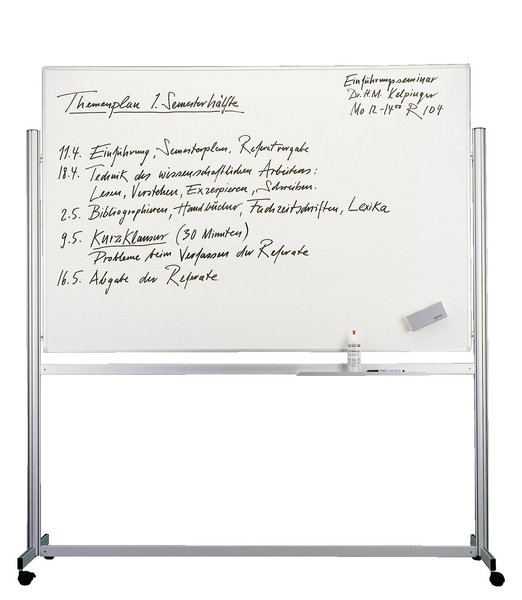 Themenplan 1. Semesterhälfte
Einführungsseminar
Dr. H.M. Kelpinger
Mo 12-14⁰⁰ R 104
11.4. Einführung, Semesterplan, Referatvergabe
18.4. Technik des wissenschaftlichen Arbeitens:
Lesen, Verstehen, Exzerpieren, Schreiben.
2.5. Bibliographieren, Handbücher, Fachzeitschriften, Lexika
9.5. Kurzklausur (30 Minuten)
Probleme beim Verfassen der Referate
16.5. Abgabe der Referate